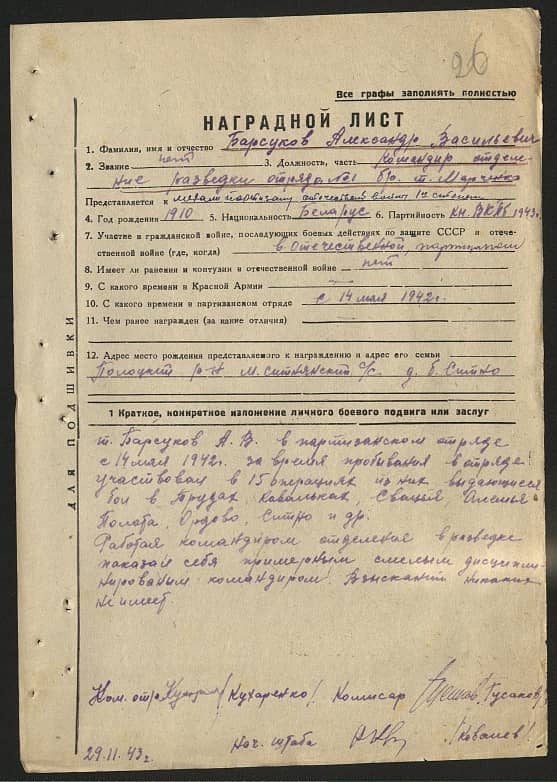 26
Все графы заполнять полностью
НАГРАДНОЙ ЛИСТ
1. Фамилия, имя и отчество Барсуков Александр Васильевич
2. Звание нет 3. Должность, часть командир отделе-
ние разведки отряда №1 бр. т. Марченко
Представляется к медали партизану отечествен. войны 1й степени
4. Год рождения 1910 5. Национальность Беларус 6. Партийность кн. ВКПб 1943г.
7. Участие в гражданской войне, последующих боевых действиях по защите СССР и отече-
ственной войне (где, когда) в отечественной, партизаном
8. Имеет ли ранения и контузии в отечественной войне нет
9. С какого времени в Красной Армии
10. С какого времени в партизанском отряде с 14 мая 1942г.
11. Чем ранее награжден (за какие отличия)
12. Адрес место рождения представляемого к награждению и адрес его семьи
Полоцкий р-н М. Ситнянский с/с. д. б. Ситно
1 Краткое, конкретное изложение личного боевого подвига или заслуг
т. Барсуков А. В. в партизанском отряде
с 14 мая 1942г. за время пробивания в отряде
участвовал в 15 операциях из них выдающиеся
бои в Трудах, Ковальках, Свацыя,
Полота, Ордово, Ситно и др.
Работая командиром отделения в разведке
показал себя примерным смелым дисципли-
нированым командиром. Взысканий никаких
не имеет.
Ком. отр. /Кухаренко/. Комисар /Гусаков/
Нач. штаба /Ковалев/.
29.11.43г.
ДЛЯ ПОДШИВКИ